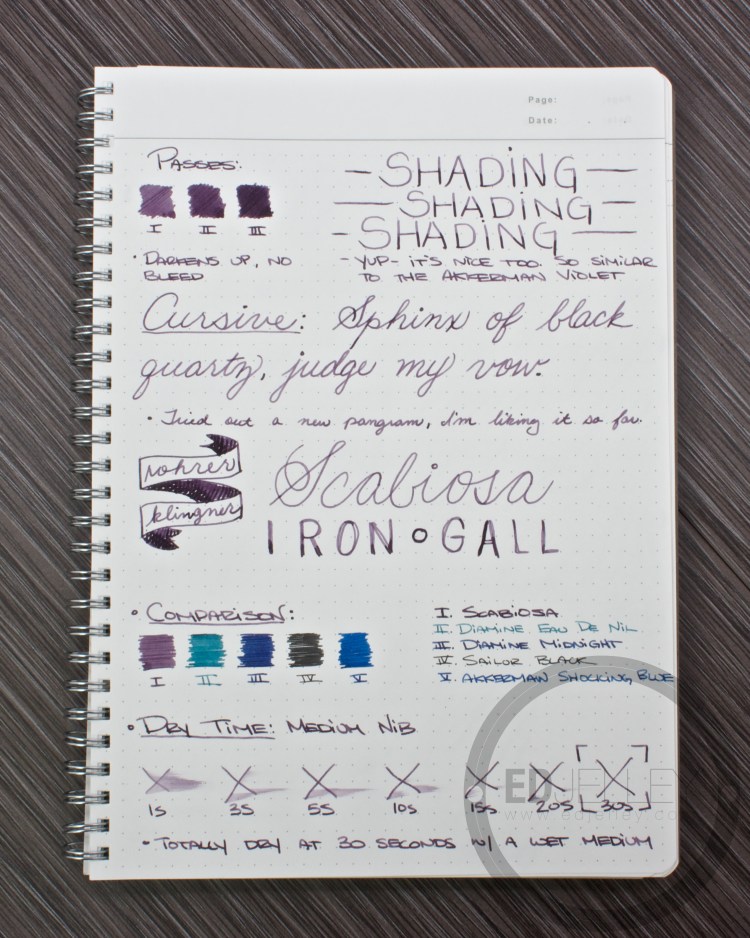 Page:
Date:
PASSES:
I II III
- SHADING -
- SHADING -
- SHADING -
• DARKENS UP, NO
BLEED
- YUP- IT'S NICE TOO. SO SIMILAR
TO THE AKKERMAN VIOLET
Cursive: Sphinx of black
quartz, judge my vow.
• Tried out a new pangram, I'm liking it so far.
rohrer
klingner
Scabiosa
IRON GALL
• COMPARISON:
I II III IV V
I. SCABIOSA
II. DIAMINE EAU DE NIL
III. DIAMINE MIDNIGHT
IV. SAILOR BLACK
V. AKKERMAN SHOCKING BLUE
• DRY TIME: MEDIUM NIB
1S 3S 5S 10S 15S 20S 30S
ED JELLEY
www.edjelley.com
• TOTALLY DRY AT 30 SECONDS W/ A WET MEDIUM